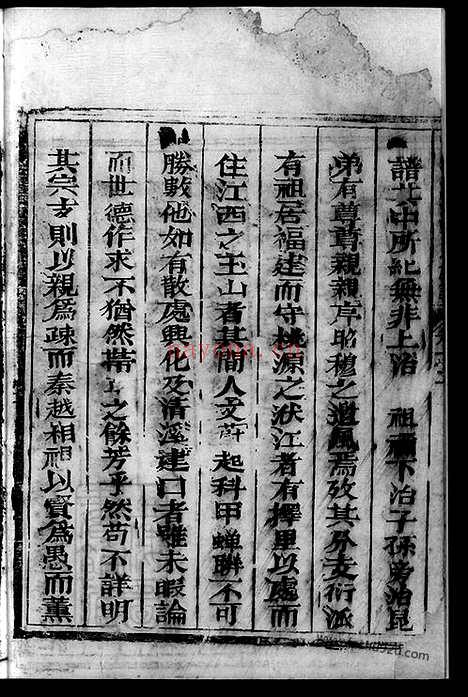 譜其中所紀無非上治 祖禰下洎子孫旁洎昆
弟有尊尊親親序昭穆之遺風焉攷其分支衍派
有祖居福建而守桃源之洑江者有擇里以處而
住江西之玉山者其間人文蔚起科甲蟬聯不可
勝數他如有散處興化及清溪建口者雖未暇論
而世德作求不猶然之餘芳乎然苟不詳明
其宗支則以親為疎而秦越相視以賢為愚而薰
nayona.cn